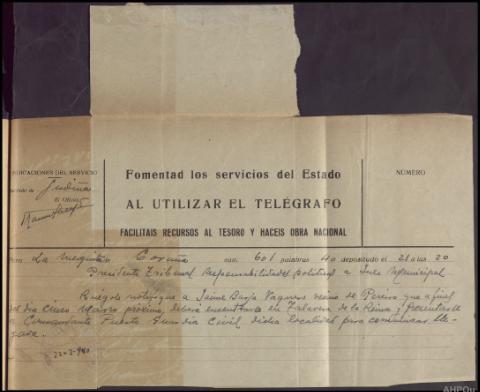 INDICACIONES DEL SERVICIO
Gudina
El Oficial
Fomentad los servicios del Estado
AL UTILIZAR EL TELÉGRAFO
FACILITAIS RECURSOS AL TESORO Y HACEIS OBRA NACIONAL
NÚMERO
La Mezquita Coruña núm. 601 palabras 40 depositado el 21 a las 20
Presidente Tribunal Responsabilidades politicas a Juez Municipal
Ruégole notifique a Jaime Barja vecino de Pereiro que a final
del dia cinco Marzo próximo, deberá encontrarse en Talavera de la Reina y Presentarse
a Comandante Puesto Guardia Civil dicha localidad para comunicar lle-
gada.
22-2-940
AHPOu